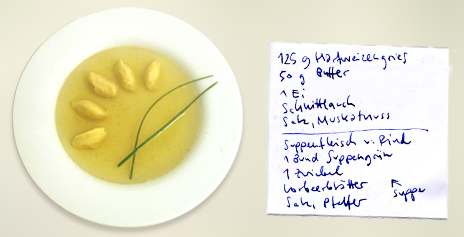 125 g Hartweizengries
50 g Butter
1 Ei
Schnittlauch
Salz, Muskatnuss
Suppenfleisch v. Rind
1 Bund Suppengrün
1 Zwiebel
Lorbeerblätter
Suppe
Salz, Pfeffer